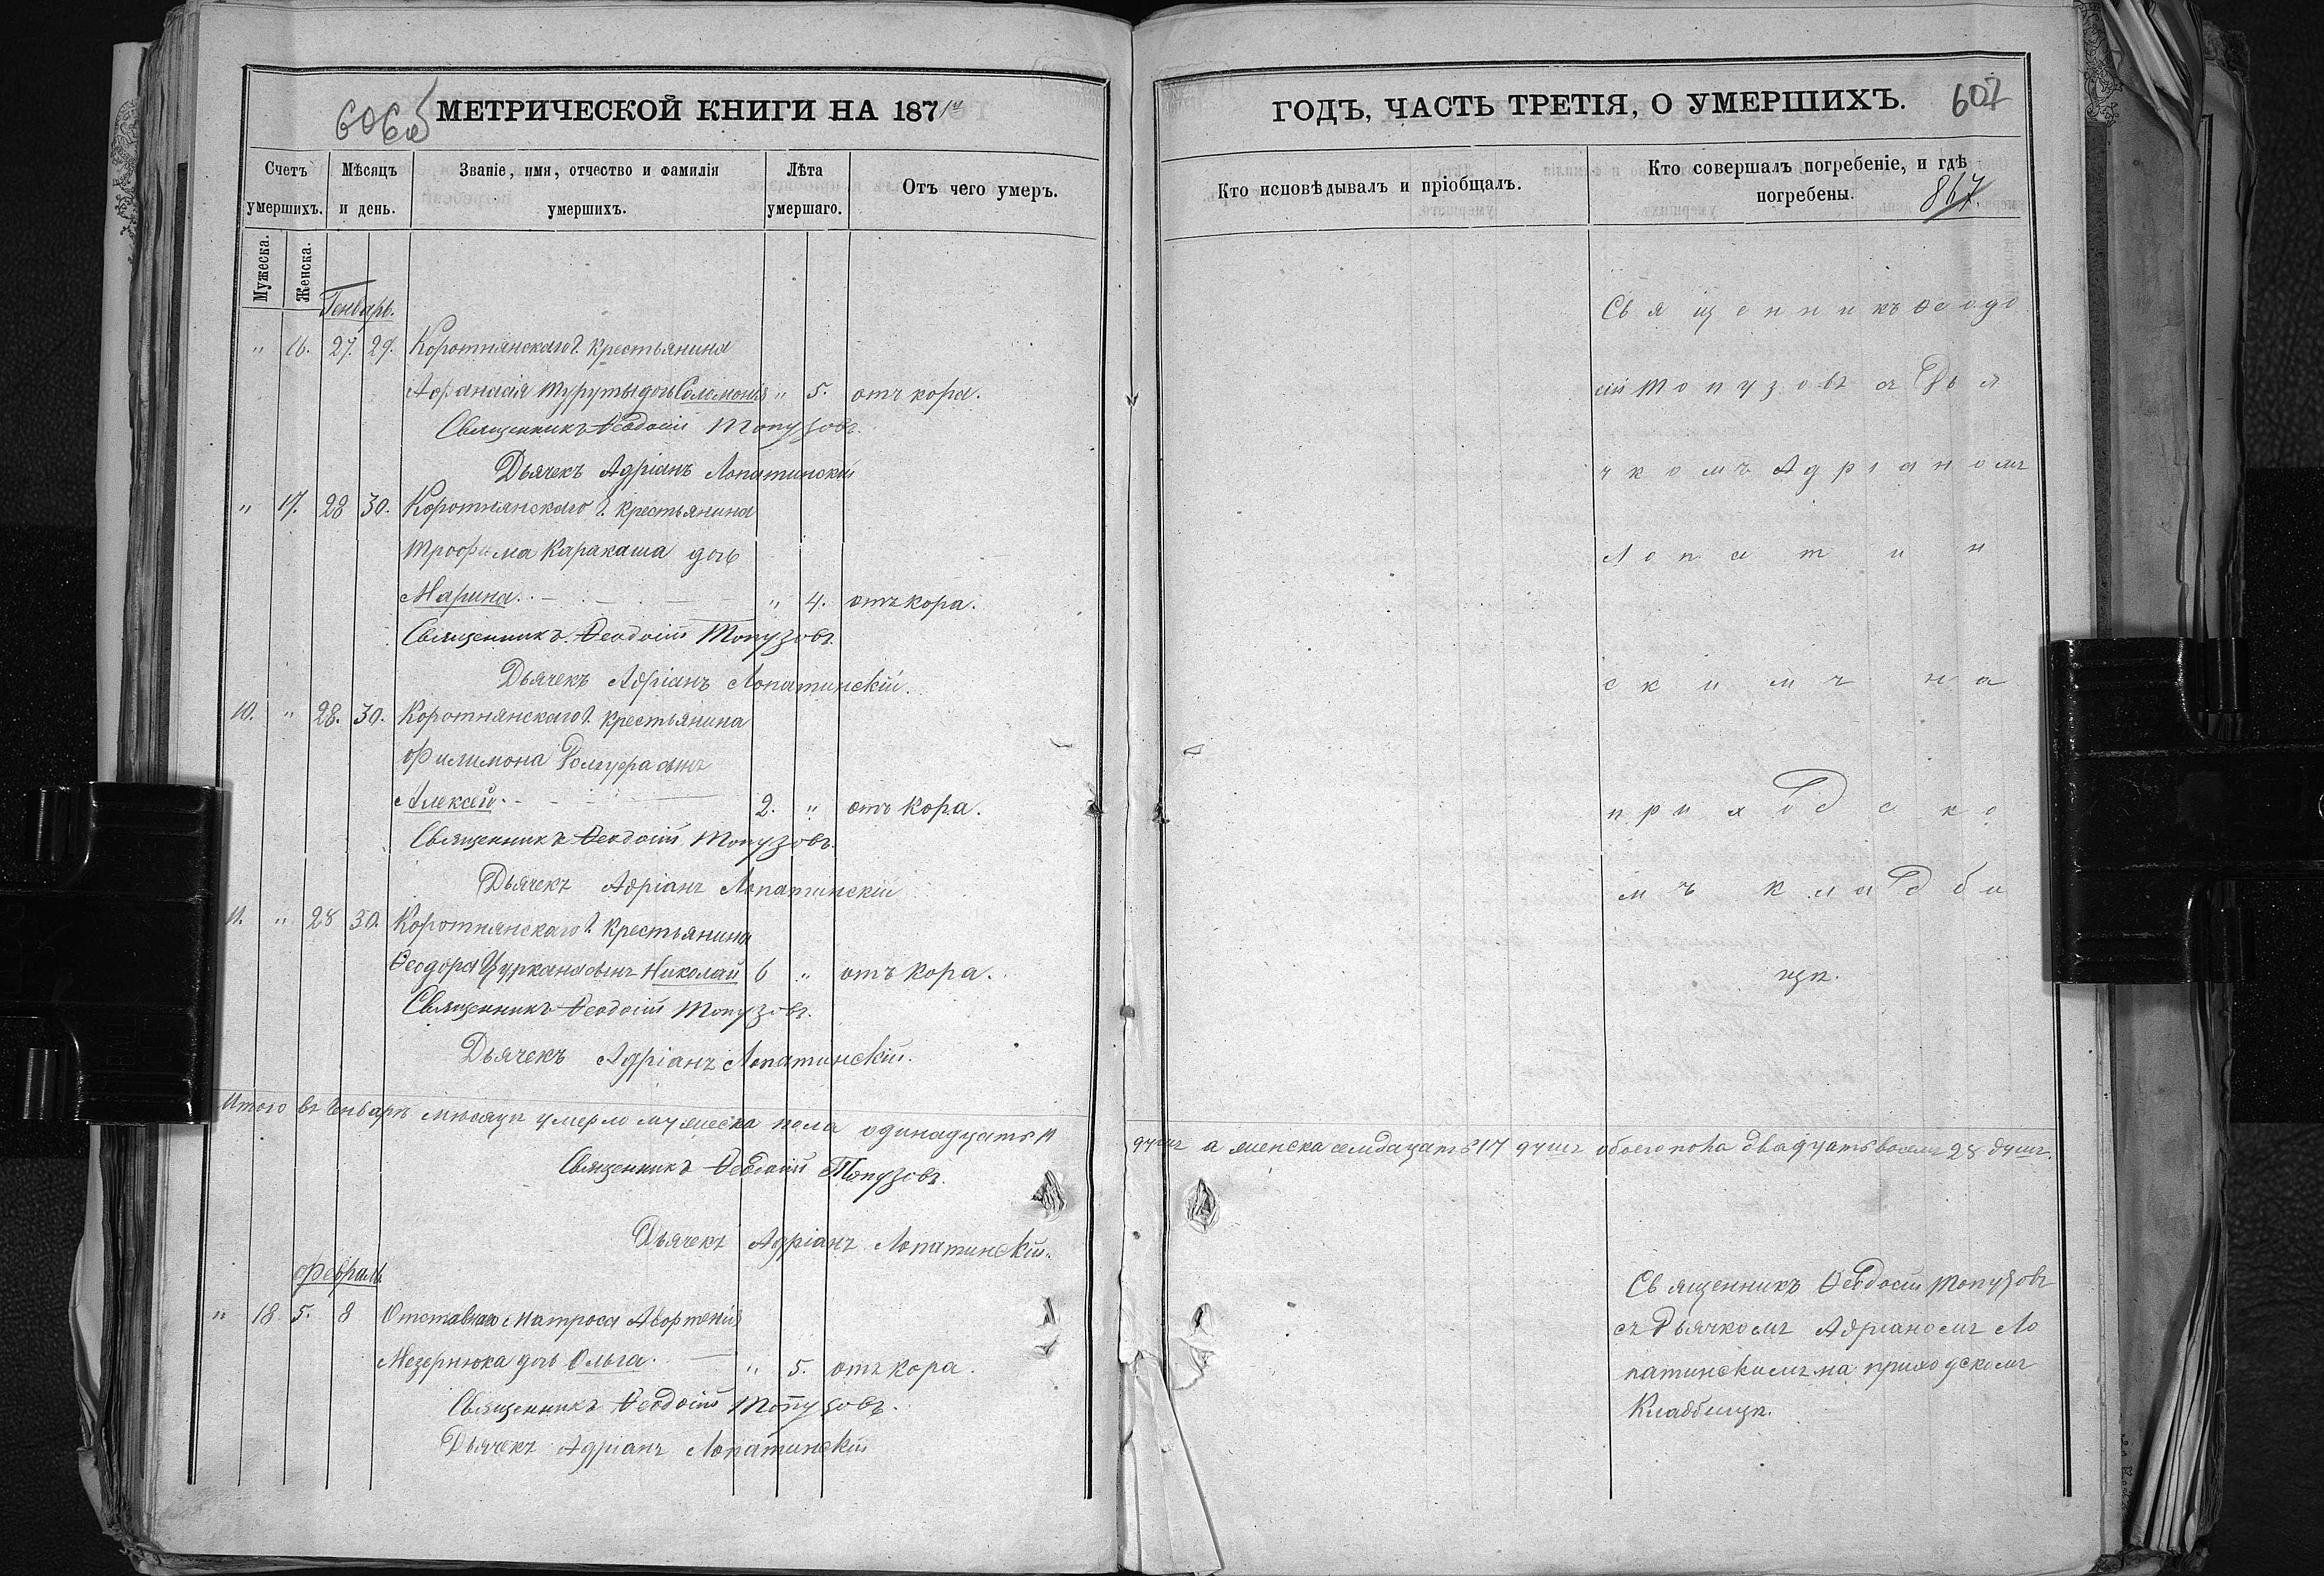 606об
МЕТРИЧЕСКОЙ КНИГИ НА 1871й
Счетъ умершихъ.
Мѣсяцъ и день.
Званіе, имя, отчество и фамилія умершихъ.
Лѣта умершаго.
Отъ чего умеръ.
Мужеска.
Женска.
Генварь.
" 16. 27. 29. Коротнянскаго Ц. крестьянина
Афанасія Туруты дочь Соломонія " 5. отъ кора.
Священникъ Ѳеодосій Топузовъ.
Дьячекъ Адріанъ Лопатинскій
" 17. 28 30. Коротнянскаго Ц. крестьянина
Трофима Каракаша дочь
Марина. " 4. отъ кора.
Священникъ Ѳеодосій Топузовъ.
Дьячекъ Адріанъ Лопатинскій.
10. " 28. 30. Коротнянскаго Ц. крестьянина
Филимона сынъ
Алексѣй. 2. " отъ кора.
Священникъ Ѳеодосій Топузовъ.
Дьячекъ Адріанъ Лопатинскій
11. " 28 30. Коротнянскаго Ц. крестьянина
Ѳеодора Цуркана сынъ Николай 6 " отъ кора.
Священникъ Ѳеодосій Топузовъ.
Дьячекъ Адріанъ Лопатинскій.
Итого въ Генварѣ мѣсяцѣ умерло мужеска пола одинадцать 11
Священникъ Ѳеодосій Топузовъ.
Дьячекъ Адріанъ Лопатинскій.
Февраль
" 18. 5. 8 Отставнаго матроса
Мезернюка дочь Ольга. " 5. отъ кора.
Священникъ Ѳеодосій Топузовъ.
Дьячекъ Адріанъ Лопатинскій
ГОДЪ, ЧАСТЬ ТРЕТІЯ, О УМЕРШИХЪ.
607
Кто исповѣдывалъ и пріобщалъ.
Кто совершалъ погребеніе, и гдѣ погребены.
867.
Священникъ Ѳеодо
сій Топузовъ съ Дья
чкомъ Адріаномъ
Лопатин
скимъ на
приходско
мъ кладби
щѣ.
душъ а женска семнадцать 17 душъ обоего пола двадцать восемь 28 душъ.
Священникъ Ѳеодосій Топузовъ
съ Дьячкомъ Адріаномъ Ло
патинскимъ на приходскомъ
Кладбищѣ.